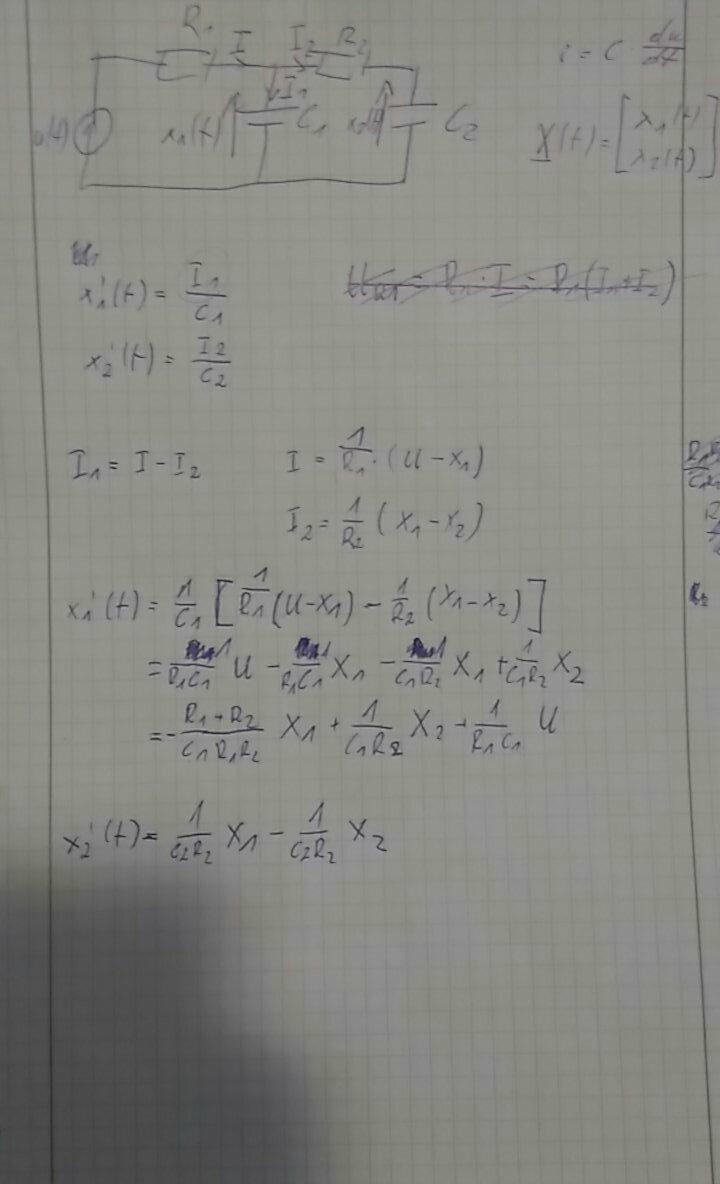 R₁ I I₂ R₂
i = C · du/dt
I₁
u(t) x₁(t) C₁ x₂(t) C₂
X(t) = [x₁(t) x₂(t)]
x₁'(t) = I₁/C₁
U_R1 = R₁ · I = R₁(I₁+I₂)
x₂'(t) = I₂/C₂
I₁ = I - I₂ I = 1/R₁ · (U - x₁)
I₂ = 1/R₂ (x₁ - x₂)
x₁'(t) = 1/C₁ [1/R₁ (U-x₁) - 1/R₂ (x₁-x₂)]
= 1/R₁C₁ U - 1/R₁C₁ x₁ - 1/C₁R₂ x₁ + 1/C₁R₂ x₂
= - R₁+R₂/C₁R₁R₂ x₁ + 1/C₁R₂ x₂ + 1/R₁C₁ U
x₂'(t) = 1/C₂R₂ x₁ - 1/C₂R₂ x₂